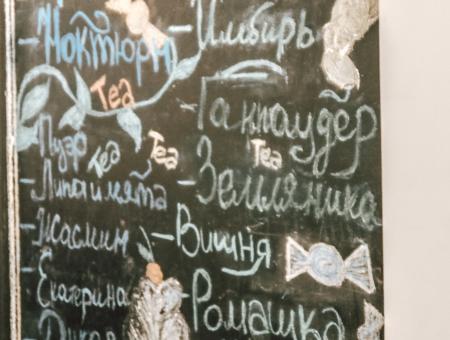 -Ноктюрн
Tea
-Пуэр
Tea
Tea
-Липа и мята
-Жасмин
-Екатерина
-Имбирь
-Ганпаудёр
Tea
-Земляника
-Вишня
-Ромашка